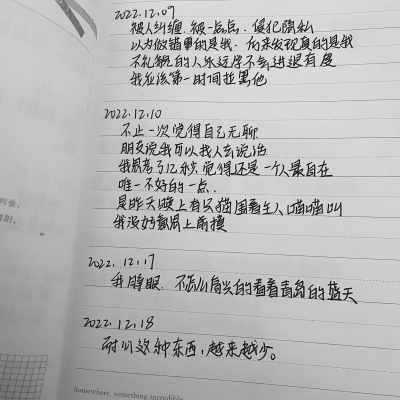 2022.12.09
被人纠缠.被一点点.侵犯隐私
以为做错事的是我.后来发现真的是我
不礼貌的人永远学不会进退有度
我应该第一时间拉黑他
2022.12.10
不止一次觉得自己无聊
朋友说我可以找人去说话
我思考了1亿秒觉得还是一个人最自在
唯一不好的一点.
是昨天晚上有只猫围着生人喵喵叫
我没好意思上前摸
2022.12.17
我睁眼.不怎么高兴的看着青岛的蓝天
2022.12.18
耐心这种东西,越来越少。
Somewhere, something incredible